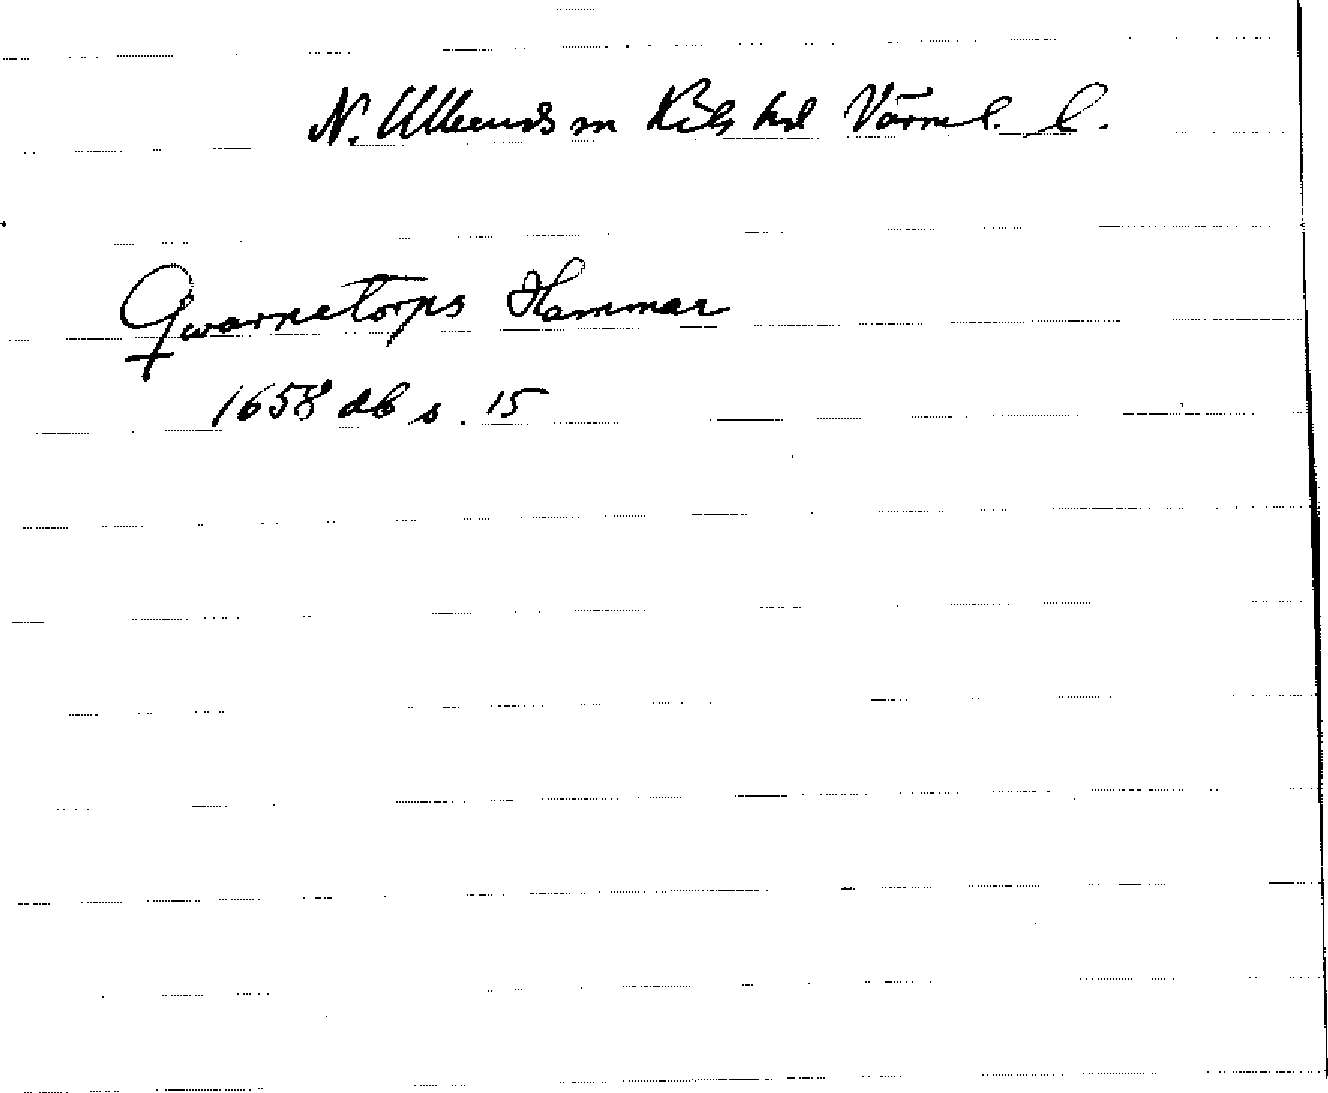 N. Ulleruds sn Kils hd Värml. l.
Qwarnetorps Hammar
1658 db s. 15